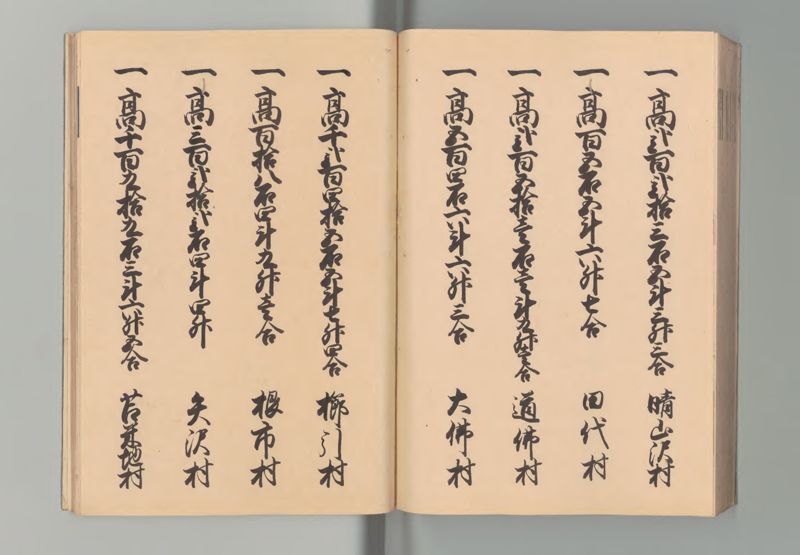 一 高弐百弐拾三石五斗三升三合 晴山沢村
一 高百五石五斗六升七合 田代村
一 高弐百五拾壱石壱斗九升壱合 道佛村
一 高五百四石六斗六升三合 大佛村
一 高千弐百四拾五石五斗七升四合 櫛引村
一 高百拾八石四斗九升壱合 根市村
一 高三百弐拾弐石四斗四升 矢沢村
一 高千百九拾九石三斗六升五合 苫米地村